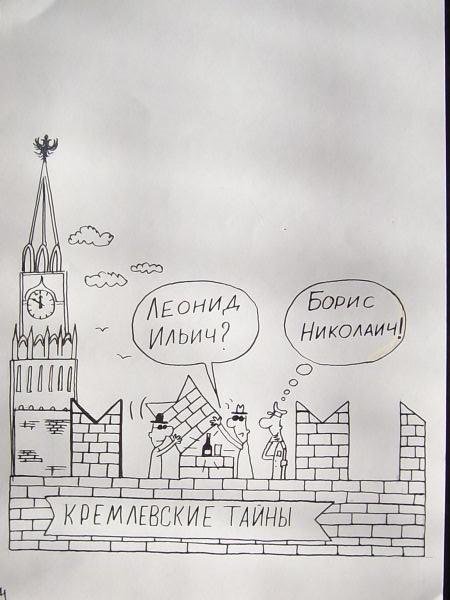 Леонид
Ильич?
Борис
Николаич!
КРЕМЛЕВСКИЕ ТАЙНЫ